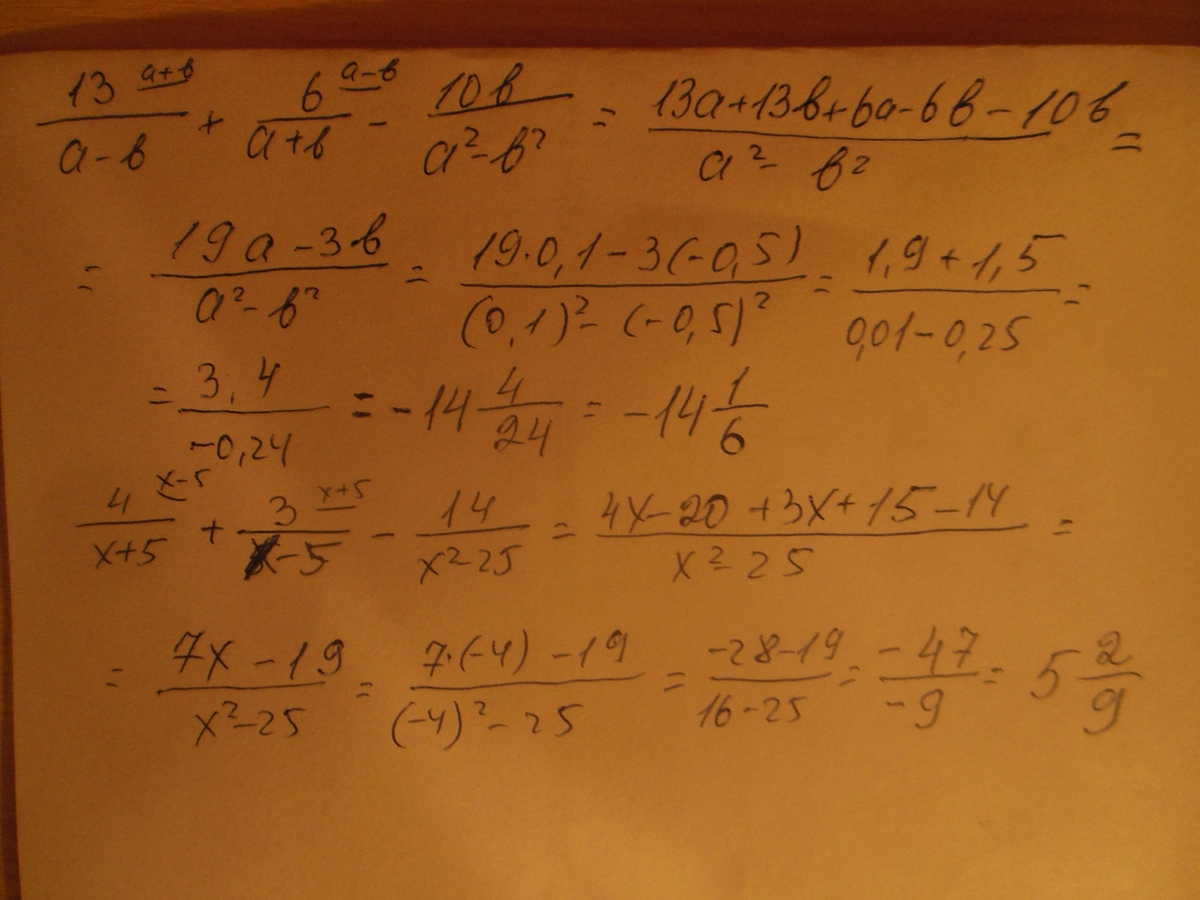 13 a+b / a-b + 6 a-b / a+b - 10b / a²-b² = 13a+13b+6a-6b-10b / a²-b² =
= 19a-3b / a²-b² = 19·0,1-3(-0,5) / (0,1)²-(-0,5)² = 1,9+1,5 / 0,01-0,25 =
= 3,4 / -0,24 = -14 4/24 = -14 1/6
4 x-5 / x+5 + 3 x+5 / x-5 - 14 / x²-25 = 4x-20+3x+15-14 / x²-25 =
= 7x-19 / x²-25 = 7·(-4)-19 / (-4)²-25 = -28-19 / 16-25 = -47 / -9 = 5 2/9